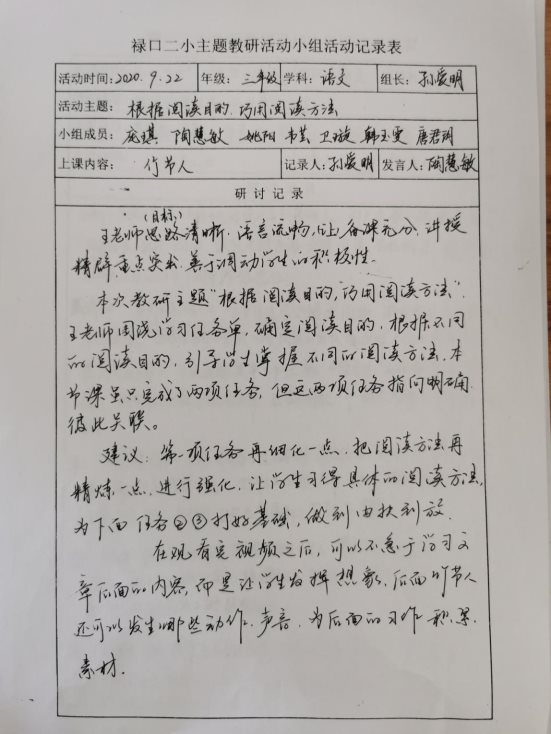 禄口二小主题教研活动小组活动记录表
活动时间:2020.9.22 年级: 三年级 学科: 语文 组长: 孙爱明
活动主题: 根据阅读目的,巧用阅读方法
小组成员: 庞琪 陶慧敏 姚阳 韦芸 卫璇 韩玉雯 唐君玥
上课内容: 竹节人 记录人:孙爱明 发言人:陶慧敏
研讨记录
(目标)
王老师思路清晰.语言流畅.备课充分.讲授
精辟.重点突出.善于调动学生的积极性.
本次教研主题"根据阅读目的,巧用阅读方法".
王老师围绕学习任务单,确定阅读目的,根据不同
的阅读目的,引导学生掌握不同的阅读方法.本
节课虽只完成了两项任务,但这两项任务指向明确.
彼此关联。
建议:第一项任务再细化一点.把阅读方法再
精炼一点,进行强化.让学生习得具体的阅读方法,
为下面任务②③打好基础,做到由扶到放.
在观看完视频之后,可以不急于学习文
章后面的内容,而是让学生发挥想象.后面竹节人
还可以发生哪些动作.声音.为后面的习作积累.
素材.